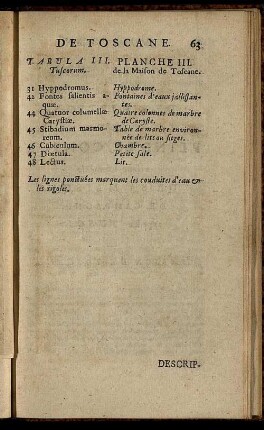 DE TOSCANE. 63
TABULA III. PLANCHE III.
Tuscorum. de la Maison de Toscane.
31 Hyppodromus. Hyppodrome.
42 Fontes salientis a- Fontaines d'eaux jallissan-
quæ. tes.
44 Quatuor columellæ Quatre colonnes de marbre
Carystiæ. de Caryste.
45 Stibadium marmo- Table de marbre environ-
reum. née de lits ou sieges.
46 Cubiculum. Chambre.
47 Diætula. Petite sale.
48 Lectus. Lit.
Les lignes ponctuées marquent les conduites d'eau en
les rigoles.
DESCRIP-